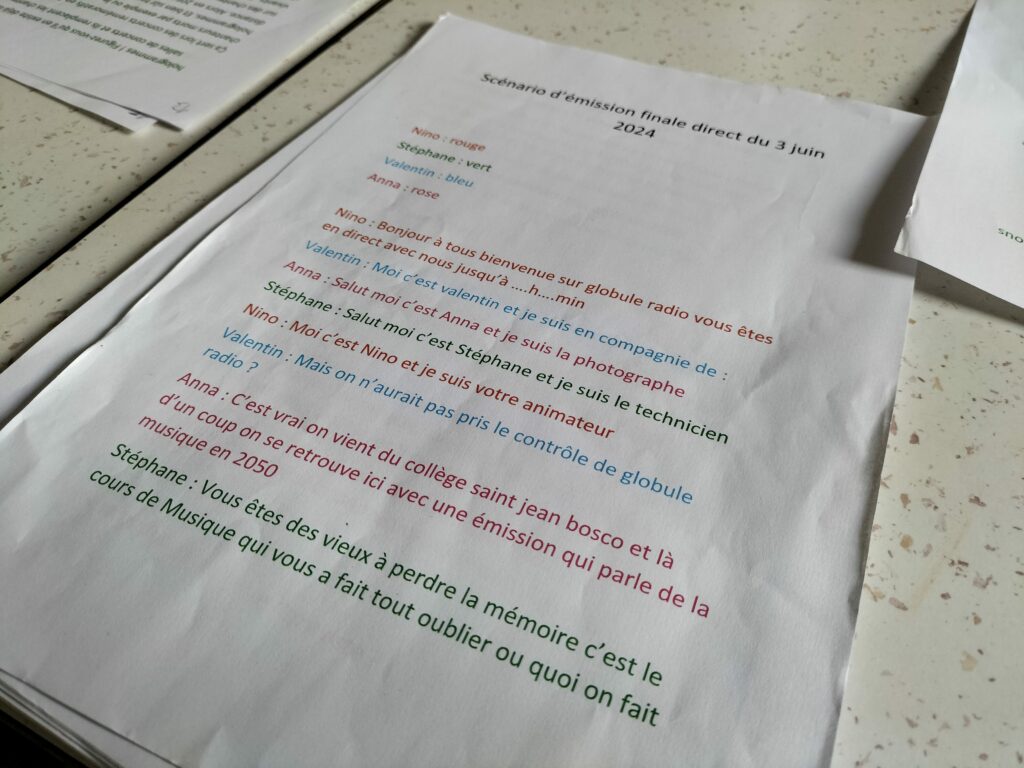 Scénario d'émission finale direct du 3 juin
2024
Nino : rouge
Stéphane : vert
Valentin : bleu
Anna : rose
Nino : Bonjour à tous bienvenue sur globule radio vous êtes
en direct avec nous jusqu'à ....h....min
Valentin : Moi c'est valentin et je suis en compagnie de :
Anna : Salut moi c'est Anna et je suis la photographe
Stéphane : Salut moi c'est Stéphane et je suis le technicien
Nino : Moi c'est Nino et je suis votre animateur
Valentin : Mais on n'aurait pas pris le contrôle de globule
radio ?
Anna : C'est vrai on vient du collège saint jean bosco et là
d'un coup on se retrouve ici avec une émission qui parle de la
musique en 2050
Stéphane : Vous êtes des vieux à perdre la mémoire c'est le
cours de Musique qui vous a fait tout oublier ou quoi on fait